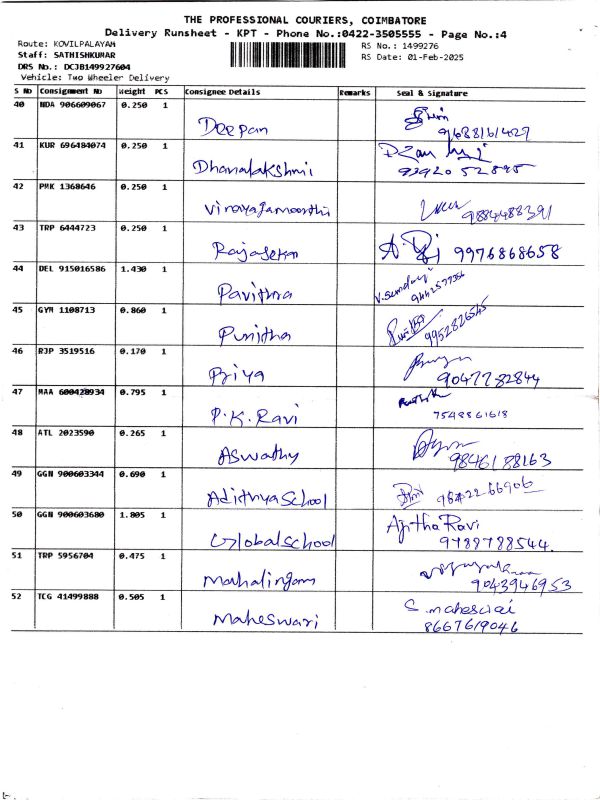 THE PROFESSIONAL COURIERS, COIMBATORE
Delivery Runsheet - KPT - Phone No.:0422-3505555 - Page No.:4
Route: KOVILPALAYAM
RS No.: 1499276
Staff: SATHISHKUMAR
RS Date: 01-Feb-2025
DRS No.: DCJB149927604
Vehicle: Two Wheeler Delivery
S No Consignment No Weight PCS Consignee Details Remarks Seal & Signature
40 NDA 906609067 0.250 1
Deepan 9688161427
41 KUR 696484074 0.250 1
Dhanalakshmi
42 PMK 1368646 0.250 1
Vinayagamoorthi 9884488391
43 TRP 6444723 0.250 1
Rajasekar 9976868658
44 DEL 915016586 1.430 1
Pavithra
45 GYM 1108713 0.860 1
Punitha 9952826545
46 RJP 3519516 0.170 1
Priya 9047782844
47 MAA 600428934 0.795 1
P.K. Ravi 7548861618
48 ATL 2023590 0.265 1
Aswathy 9846188163
49 GGN 900603344 0.690 1
Adithya School
50 GGN 900603680 1.805 1 Ajitha Ravi
Global School 9789788544.
51 TRP 5956704 0.475 1
Mahalingam 9043946953
52 TCG 41499888 0.505 1
Maheswari 8667619046